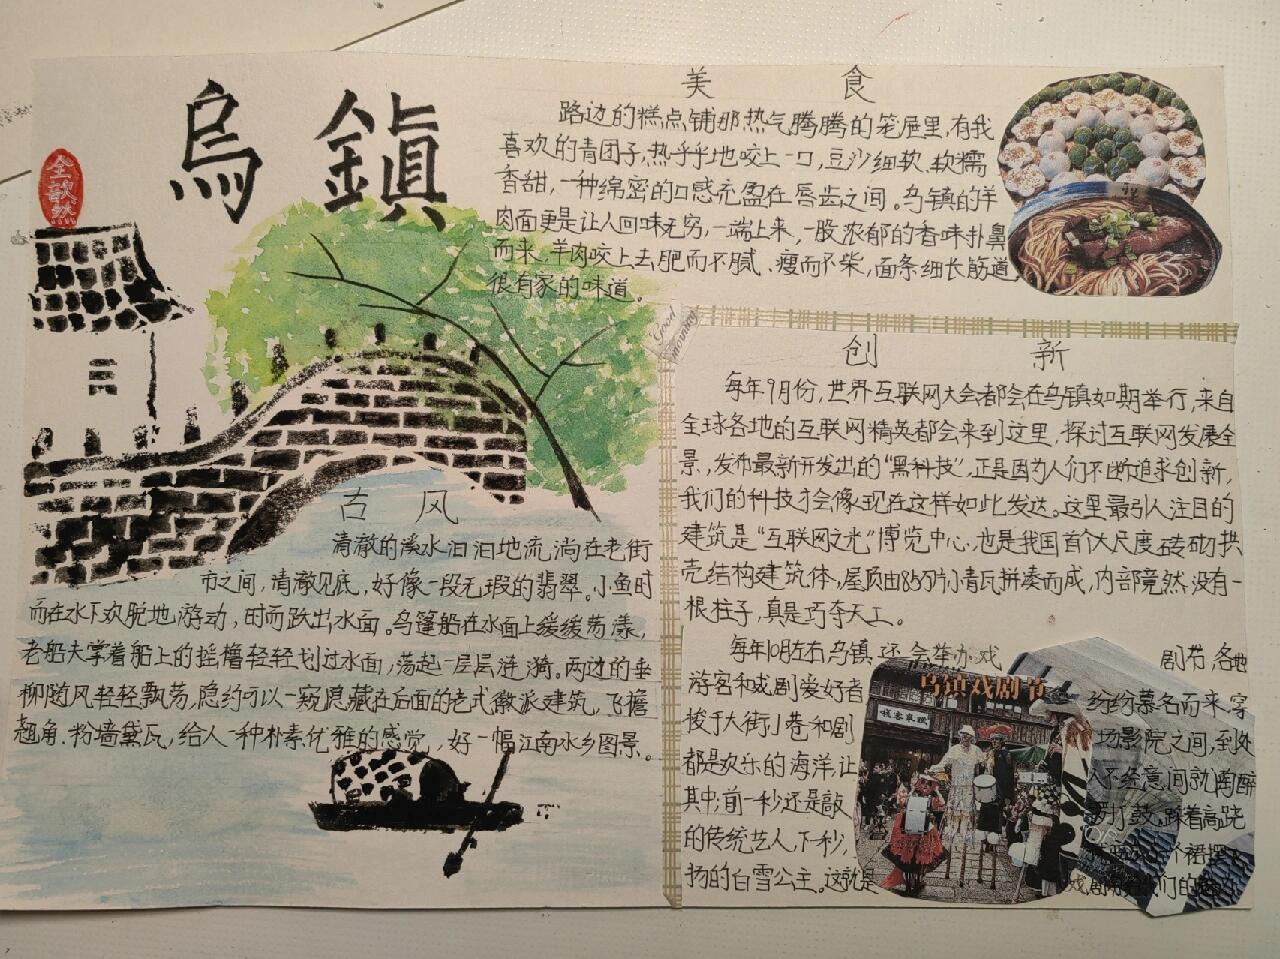 烏鎮
金歆然
美食
路边的糕点铺那热气腾腾的笼屉里,有我
喜欢的青团子,热乎乎地咬上一口,豆沙细软,软糯
香甜,一种绵密的口感充盈在唇齿之间。乌镇的羊
肉面更是让人回味无穷,一端上来,一股浓郁的香味扑鼻
而来,羊肉咬上去肥而不腻、瘦而不柴,面条细长筋道,
很有家的味道。
Good
morning
古风
清澈的溪水汩汩地流淌在老街
市之间,清澈见底,好像一段无瑕的翡翠。小鱼时
而在水下欢脱地游动,时而跃出水面。乌篷船在水面上缓缓荡漾,
老船夫掌着船上的摇橹轻轻划过水面,荡起一层层涟漪。两边的垂
柳随风轻轻飘荡,隐约可以一窥隐藏在后面的老式徽派建筑,飞檐
翘角.粉墙黛瓦,给人一种朴素优雅的感觉,好一幅江南水乡图景。
创新
每年9月份,世界互联网大会都会在乌镇如期举行,来自
全球各地的互联网精英都会来到这里,探讨互联网发展全
景,发布最新开发出的“黑科技”,正是因为人们不断追求创新,
我们的科技才会像现在这样如此发达。这里最引人注目的
建筑是“互联网之光”博览中心,也是我国首个大尺度砖砌拱
壳结构建筑体,屋顶由85万片小青瓦拼凑而成,内部竟然没有一
根柱子,真是巧夺天工。
每年10月左右乌镇还会举办戏剧节,各地
游客和戏剧爱好者纷纷慕名而来,穿
梭于大街小巷和剧场影院之间,到处
都是欢乐的海洋,让人不经意间就陶醉
其中,前一秒还是敲锣打鼓,踩着高跷
的传统艺人,下一秒,裙摆飞
扬的白雪公主。这就是戏剧给我们的
乌镇戏剧节